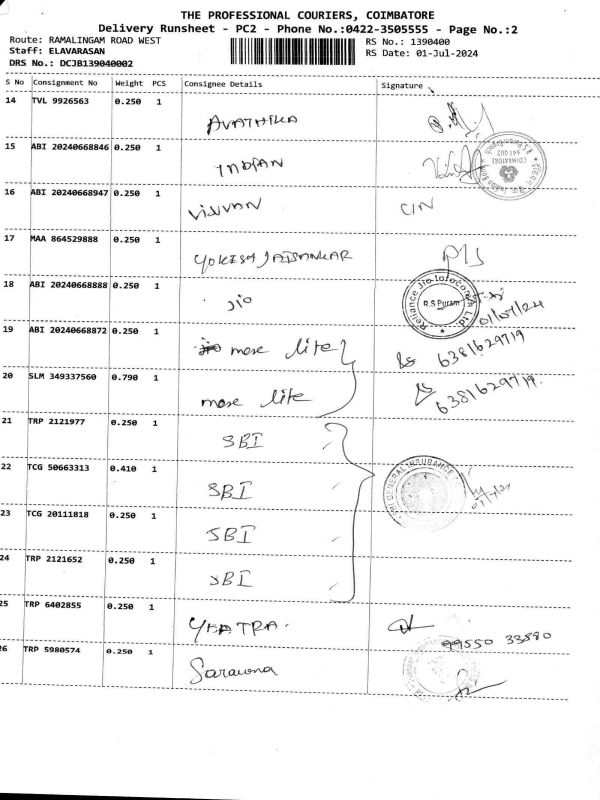 THE PROFESSIONAL COURIERS, COIMBATORE
Delivery Runsheet - PC2 - Phone No.:0422-3505555 - Page No.:2
Route: RAMALINGAM ROAD WEST
RS No.: 1390400
Staff: ELAVARASAN
RS Date: 01-Jul-2024
DRS No.: DCJB139040002
S No Consignment No Weight PCS Consignee Details Signature
14 TVL 9926563 0.250 1 AVATHIKA
15 ABI 20240668846 0.250 1 INDIAN
COIMBATORE
641 002
16 ABI 20240668947 0.250 1 CIN
17 MAA 864529888 0.250 1 YOKESH JAISANKAR
18 ABI 20240668888 0.250 1 JIO
Reliance Jio Infocomm Ltd.
R.S Puram
01/07/24
19 ABI 20240668872 0.250 1 more lite 6381629719
20 SLM 349337560 0.790 1 more lite 6381629719
21 TRP 2121977 0.250 1 SBI
22 TCG 50663313 0.410 1 SBI
GENERAL INSURANCE
23 TCG 20111818 0.250 1 SBI
24 TRP 2121652 0.250 1 SBI
25 TRP 6402855 0.250 1 YHATRA.
99550 33590
26 TRP 5980574 0.250 1 Saravana